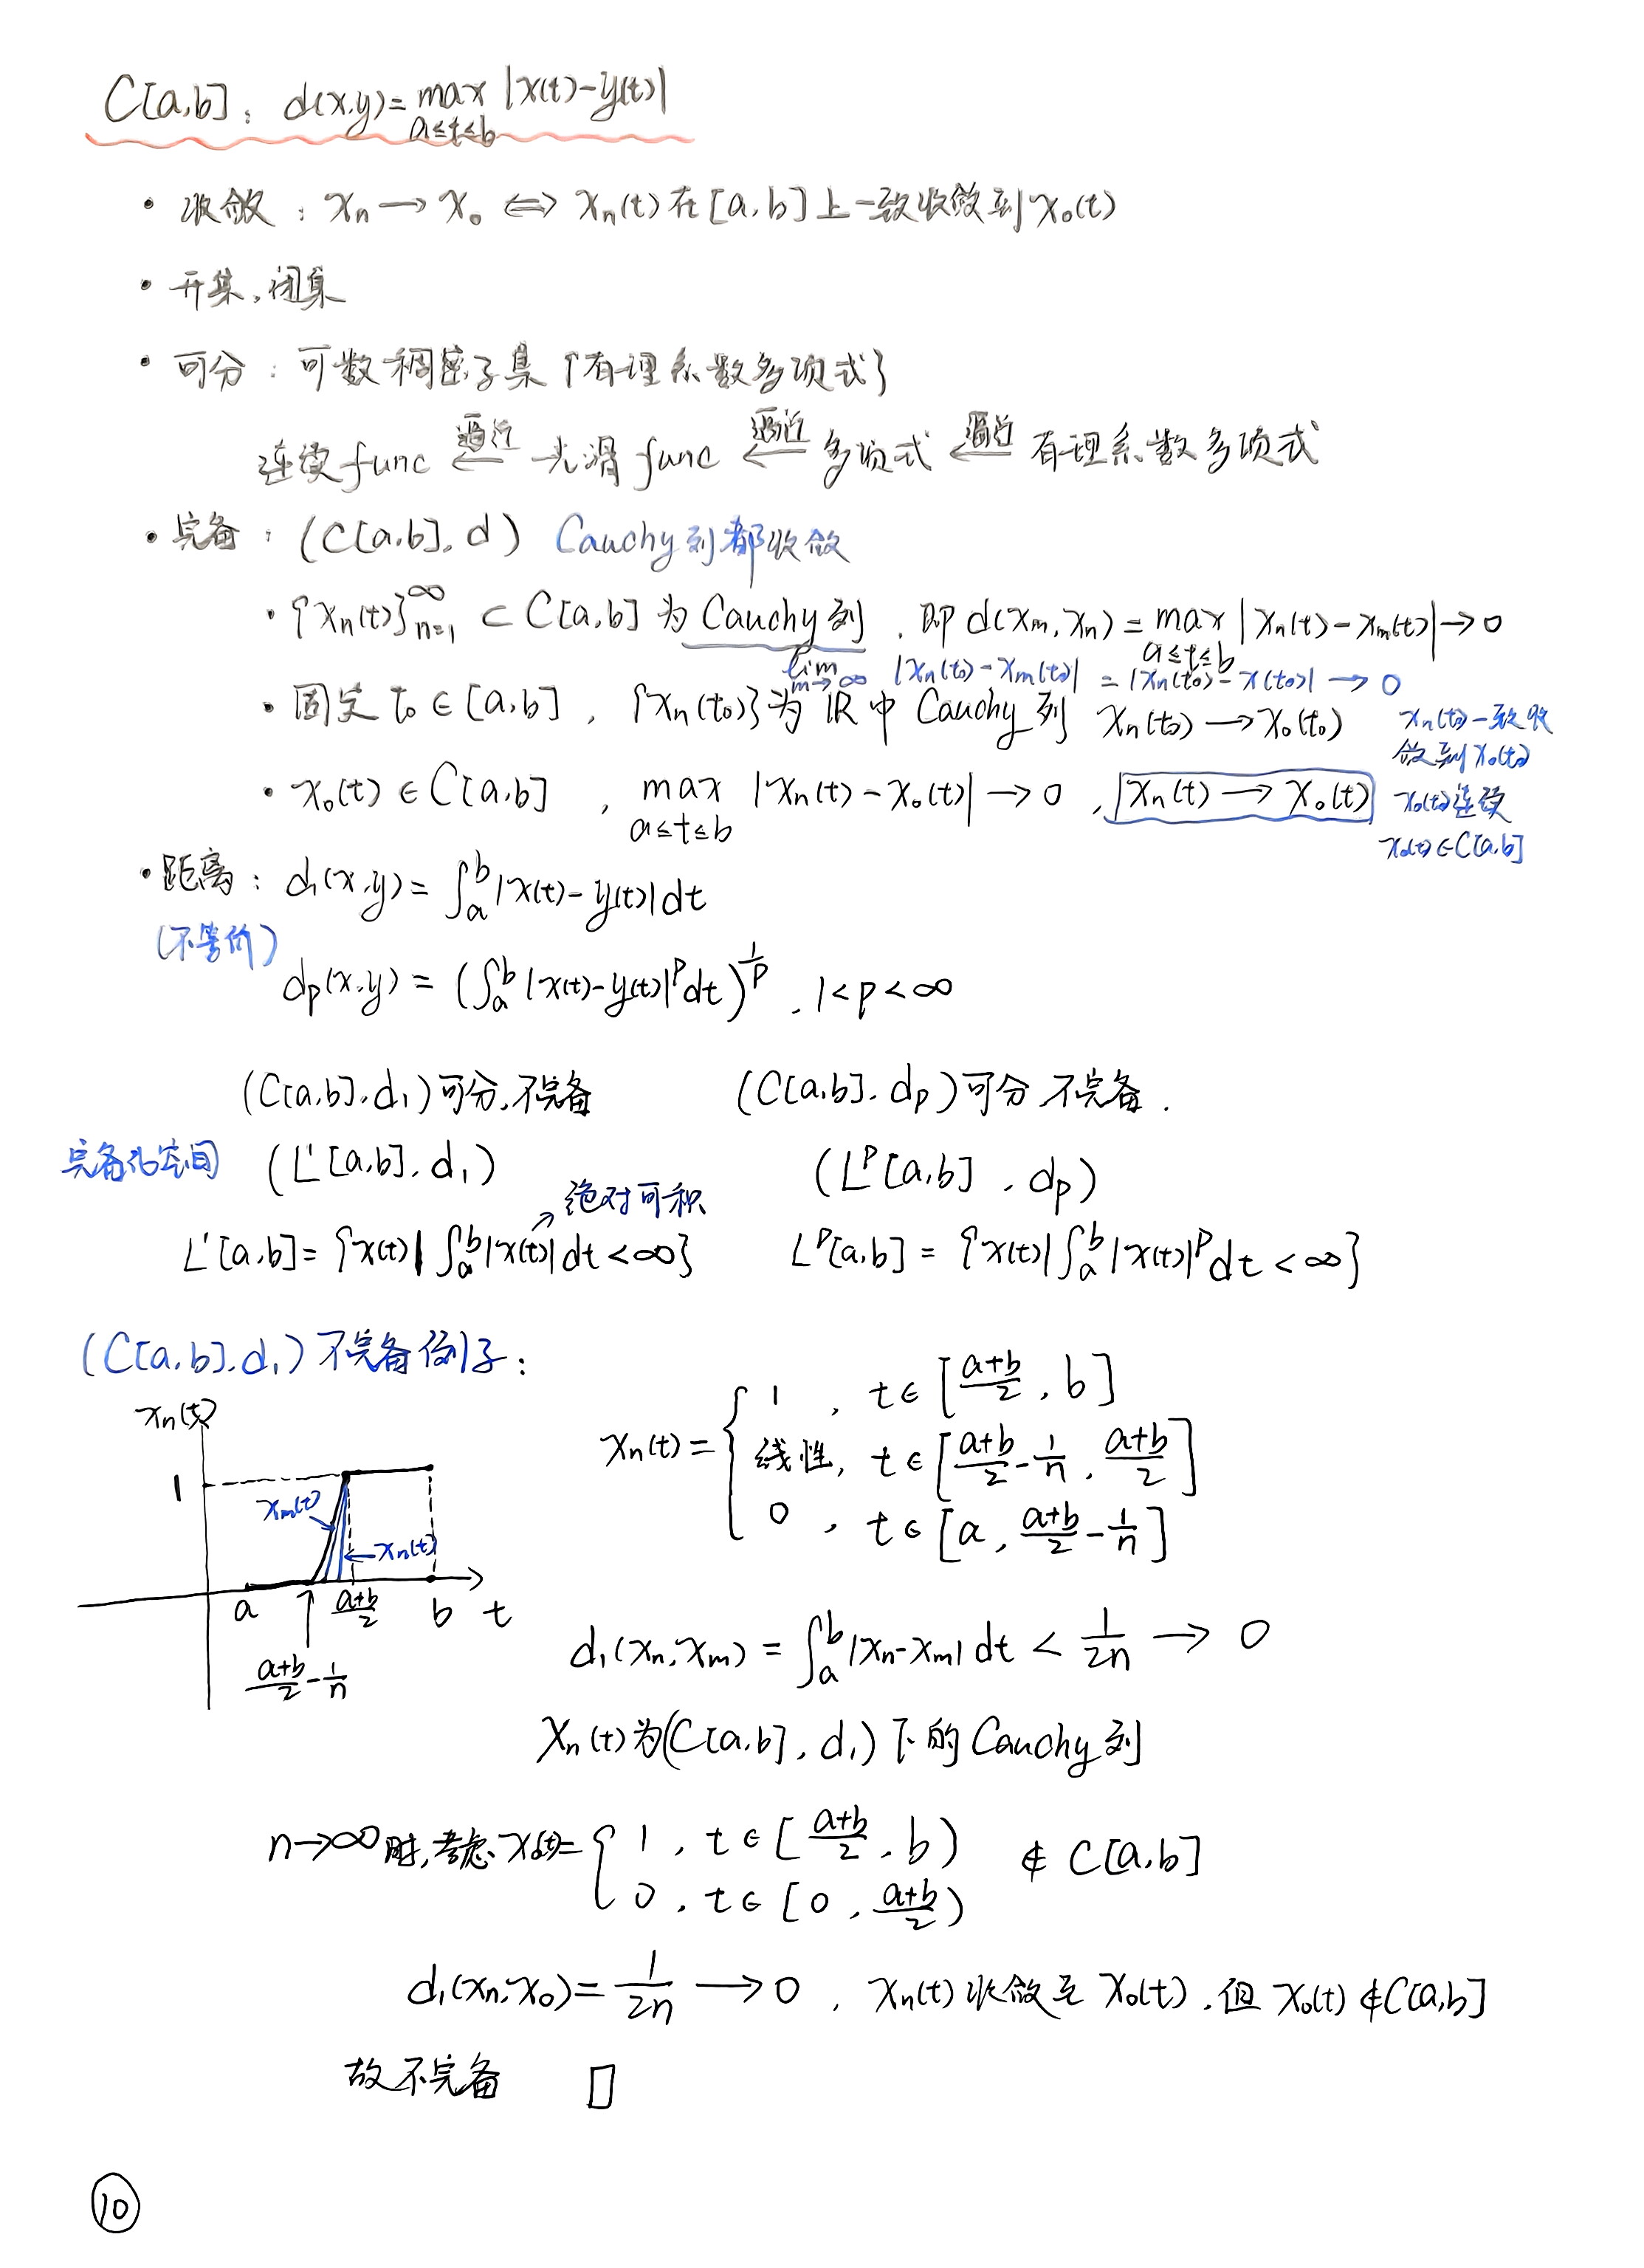 C[a,b]: d(x,y)=max_{a≤t≤b} |x(t)-y(t)|
• 收敛: xₙ→x₀ ⇔ xₙ(t)在[a,b]上一致收敛到x₀(t)
• 开集,闭集
• 可分: 可数稠密子集{有理系数多项式}
连续func ⟸^{逼近} 光滑func ⟸^{逼近} 多项式 ⟸^{逼近} 有理系数多项式
• 完备: (C[a,b],d) Cauchy列都收敛
• {xₙ(t)}_{n=1}^∞ ⊂ C[a,b]为Cauchy列, 即d(xₘ,xₙ)=max_{a≤t≤b}|xₙ(t)-xₘ(t)|→0
lim_{m→∞} |xₙ(t₀)-xₘ(t₀)| = |xₙ(t₀)-x(t₀)| → 0
• 固定t₀∈[a,b], {xₙ(t₀)}为ℝ中Cauchy列 xₙ(t₀)→x₀(t₀)
xₙ(t)一致收
敛到x₀(t)
• x₀(t)∈C[a,b], max_{a≤t≤b} |xₙ(t)-x₀(t)|→0, xₙ(t)→x₀(t)
x₀(t)连续
x₀(t)∈C[a,b]
• 距离: d₁(x,y)=∫ₐᵇ|x(t)-y(t)|dt
(不等价)
dp(x,y)=(∫ₐᵇ|x(t)-y(t)|ᵖdt)^{1/p}, 1<p<∞
(C[a,b],d₁)可分,不完备 (C[a,b],dp)可分 不完备.
完备化空间 (L¹[a,b],d₁) (Lᵖ[a,b],dp)
绝对可积
L¹[a,b]={x(t)|∫ₐᵇ|x(t)|dt<∞} Lᵖ[a,b]={x(t)|∫ₐᵇ|x(t)|ᵖdt<∞}
(C[a,b],d₁)不完备例子:
xₙ(t)
1
xₘ(t)
xₙ(t)
a
(a+b)/2
b
t
(a+b)/2-1/n
xₙ(t)={ 1, t∈[(a+b)/2,b]
线性, t∈[(a+b)/2-1/n,(a+b)/2]
0, t∈[a,(a+b)/2-1/n]
d₁(xₙ,xₘ)=∫ₐᵇ|xₙ-xₘ|dt<1/2n→0
xₙ(t)为(C[a,b],d₁)下的Cauchy列
n→∞时,考虑x₀(t)={ 1, t∈[(a+b)/2,b) ∉C[a,b]
0, t∈[0,(a+b)/2)
d₁(xₙ,x₀)=1/2n→0, xₙ(t)收敛至x₀(t),但x₀(t)∉C[a,b]
故不完备 □
⑩